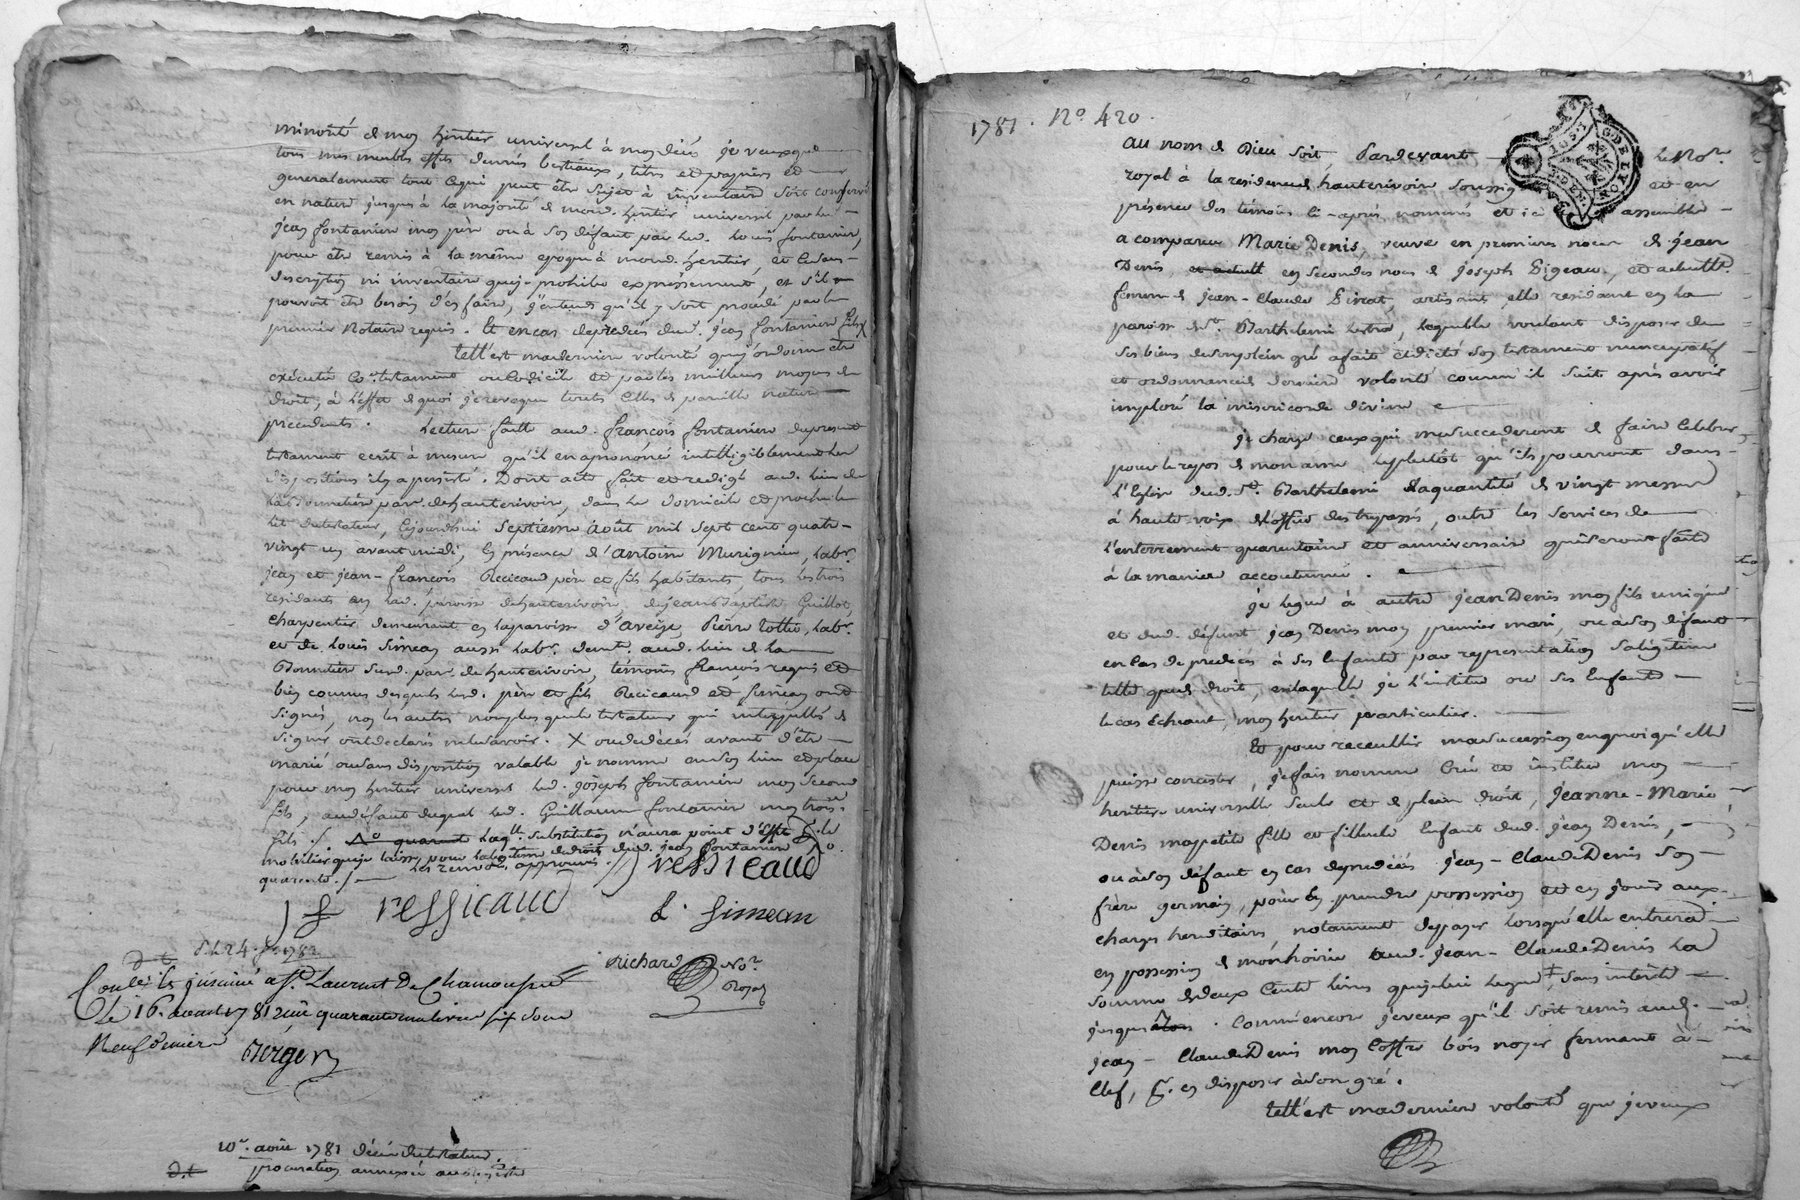 minorité de mon héritier universel à mon décès je veux que
tous mes meubles effets denrés bestiaux, titres et papiers et
generalement tout ce qui peut être sujet à inventaire soit conservé
en nature jusques à la majorité de mond. heritier universel par led.
jean fontanier mon père ou à son défaut par led. Louis fontanier,
pour être remis à la même epoque à mond. heritier, et ce sans
description ni inventaire que je prohibe expréssement, et s'il
pouvoit être besoin d'en faire, j'entends qu'il y soit procedé par le
premier Notaire requis. Et en cas de predécès dud. jean fontanier fils X
tell'est ma derniere volonté que j'ordonne être
exécutée co.e testament ou codicile et par les meilleurs moyens de
droit, à l'effet de quoi je revoque touts celles de pareille nature
precedents. Lecture faitte aud. françois fontanier du present
testament ecrit à mesure qu'il en a prononcé intelligiblement les
dispositions il y a persisté. Dont acte fait et redigé aud. lieu de
la Bonnetière par. de hauterivoire, dans le domicile et proche le
lit du testateur, cejourdhui septieme août mil sept cent quatre-
vingt un avant midi, En présence d'antoine Murignieu, labr.
jean et jean-françois Recicaud père et fils habitants, tous les trois
residants en lad. paroisse de hauterivoire, de jean Baptiste Guillot,
charpentier demeurant en la paroisse d'aveize, Pierre Tottu, labr.
et de Louis Simean aussi labr. demt. aud. lieu de la
Bonnetier sud. par. de hauterivoire, témoins françois requis et
bien connus desquels led. père et fils Recicaud et Simean ont
signés, non les autres non plus que le testateur qui interpellés de
signer ont declarés ne le savoir. X ou de décès avant d'être
marié ou sans disposition valable je nomme en son lieu et place
pour mon heritier universel led. joseph fontanier mon second
fils, au défaut duquel led. Guillaume fontanier mon trois.e
fils /. laq.lle substitution n'aura point d'effet
mobilier que je laisse dud. jean fontanier
quarente ./. Les renvois approuvés. / ressicaud
J F ressicaud L. Simean
d.t. le 24 1782
Controllé et insinué a St. Laurent De Chamousset
Le 16. aoust 1781 reçu quarante une livres six sous
Neuf deniers Berger
Richard No.re Royal
10.e août 1781 décès du testateur.
d.t. procuration annexée au registre
1781. No. 420.
GDE LYON
Au nom de Dieu soit, Pardevant Le No.re
royal à la residence d'hauterivoire soussigné et en
présence des témoins ci-après nommés et ici assemblés
a comparu Marie Denis, veuve en premieres noces de jean
Denis, en secondes noces de joseph Pigeau, et actuelle
femme de jean-Claude Pinat, artisants elle residant en la
paroisse de St. Barthelemi Lestra, laquelle voulant disposer de
ses biens de son plein gré a fait et dicté son testament nuncupatif
et ordonnance de derniere volonté comm'il suit après avoir
imploré la misericorde divine
je charge ceux qui me succederont de faire celebrer
pour le repos de mon ame, le plutôt qu'ils pourront dans
l'Eglise dud. St. Barthelemi la quantité de vingt messes
à haute voix de l'office des trepassés, outre les services de
l'enterrement quarentaine et anniversaire qui seront faits
à la maniere accoutumée.
je legue à autre jean Denis mon fils unique
et dud. défunt jean Denis mon premier mari, ou à son défaut
en cas de predécès à ses enfants par representation sa légitime
telle que de droit, en laquelle je l'institue ou ses enfants
le cas Echeant, mon heritier particulier.
Et pour receuillir ma succession en quoi qu'elle
puisse concister, je fais nomme créé et institue mon
heritiere universelle seule et de plein droit, Jeanne-Marie
Denis ma petite fille et filleule Enfant dud. jean Denis,
ou à son défaut en cas de predécès jean-Claude Denis son
frère germain, pour En prendre possession et en jouir aux
charges hereditaires notamment de payer lorsqu'elle entrera
en possession de mon hoirie aud. jean-Claude Denis la
somme de deux cents livres que je lui legue, sans intérêts
jusques alors. Comm'encore je veux qu'il soit remis aud.
jean-Claude Denis mon coffre bois noyer fermant à
clef, p.r en disposer à son gré.
tell'est ma derniere volonté que je veux